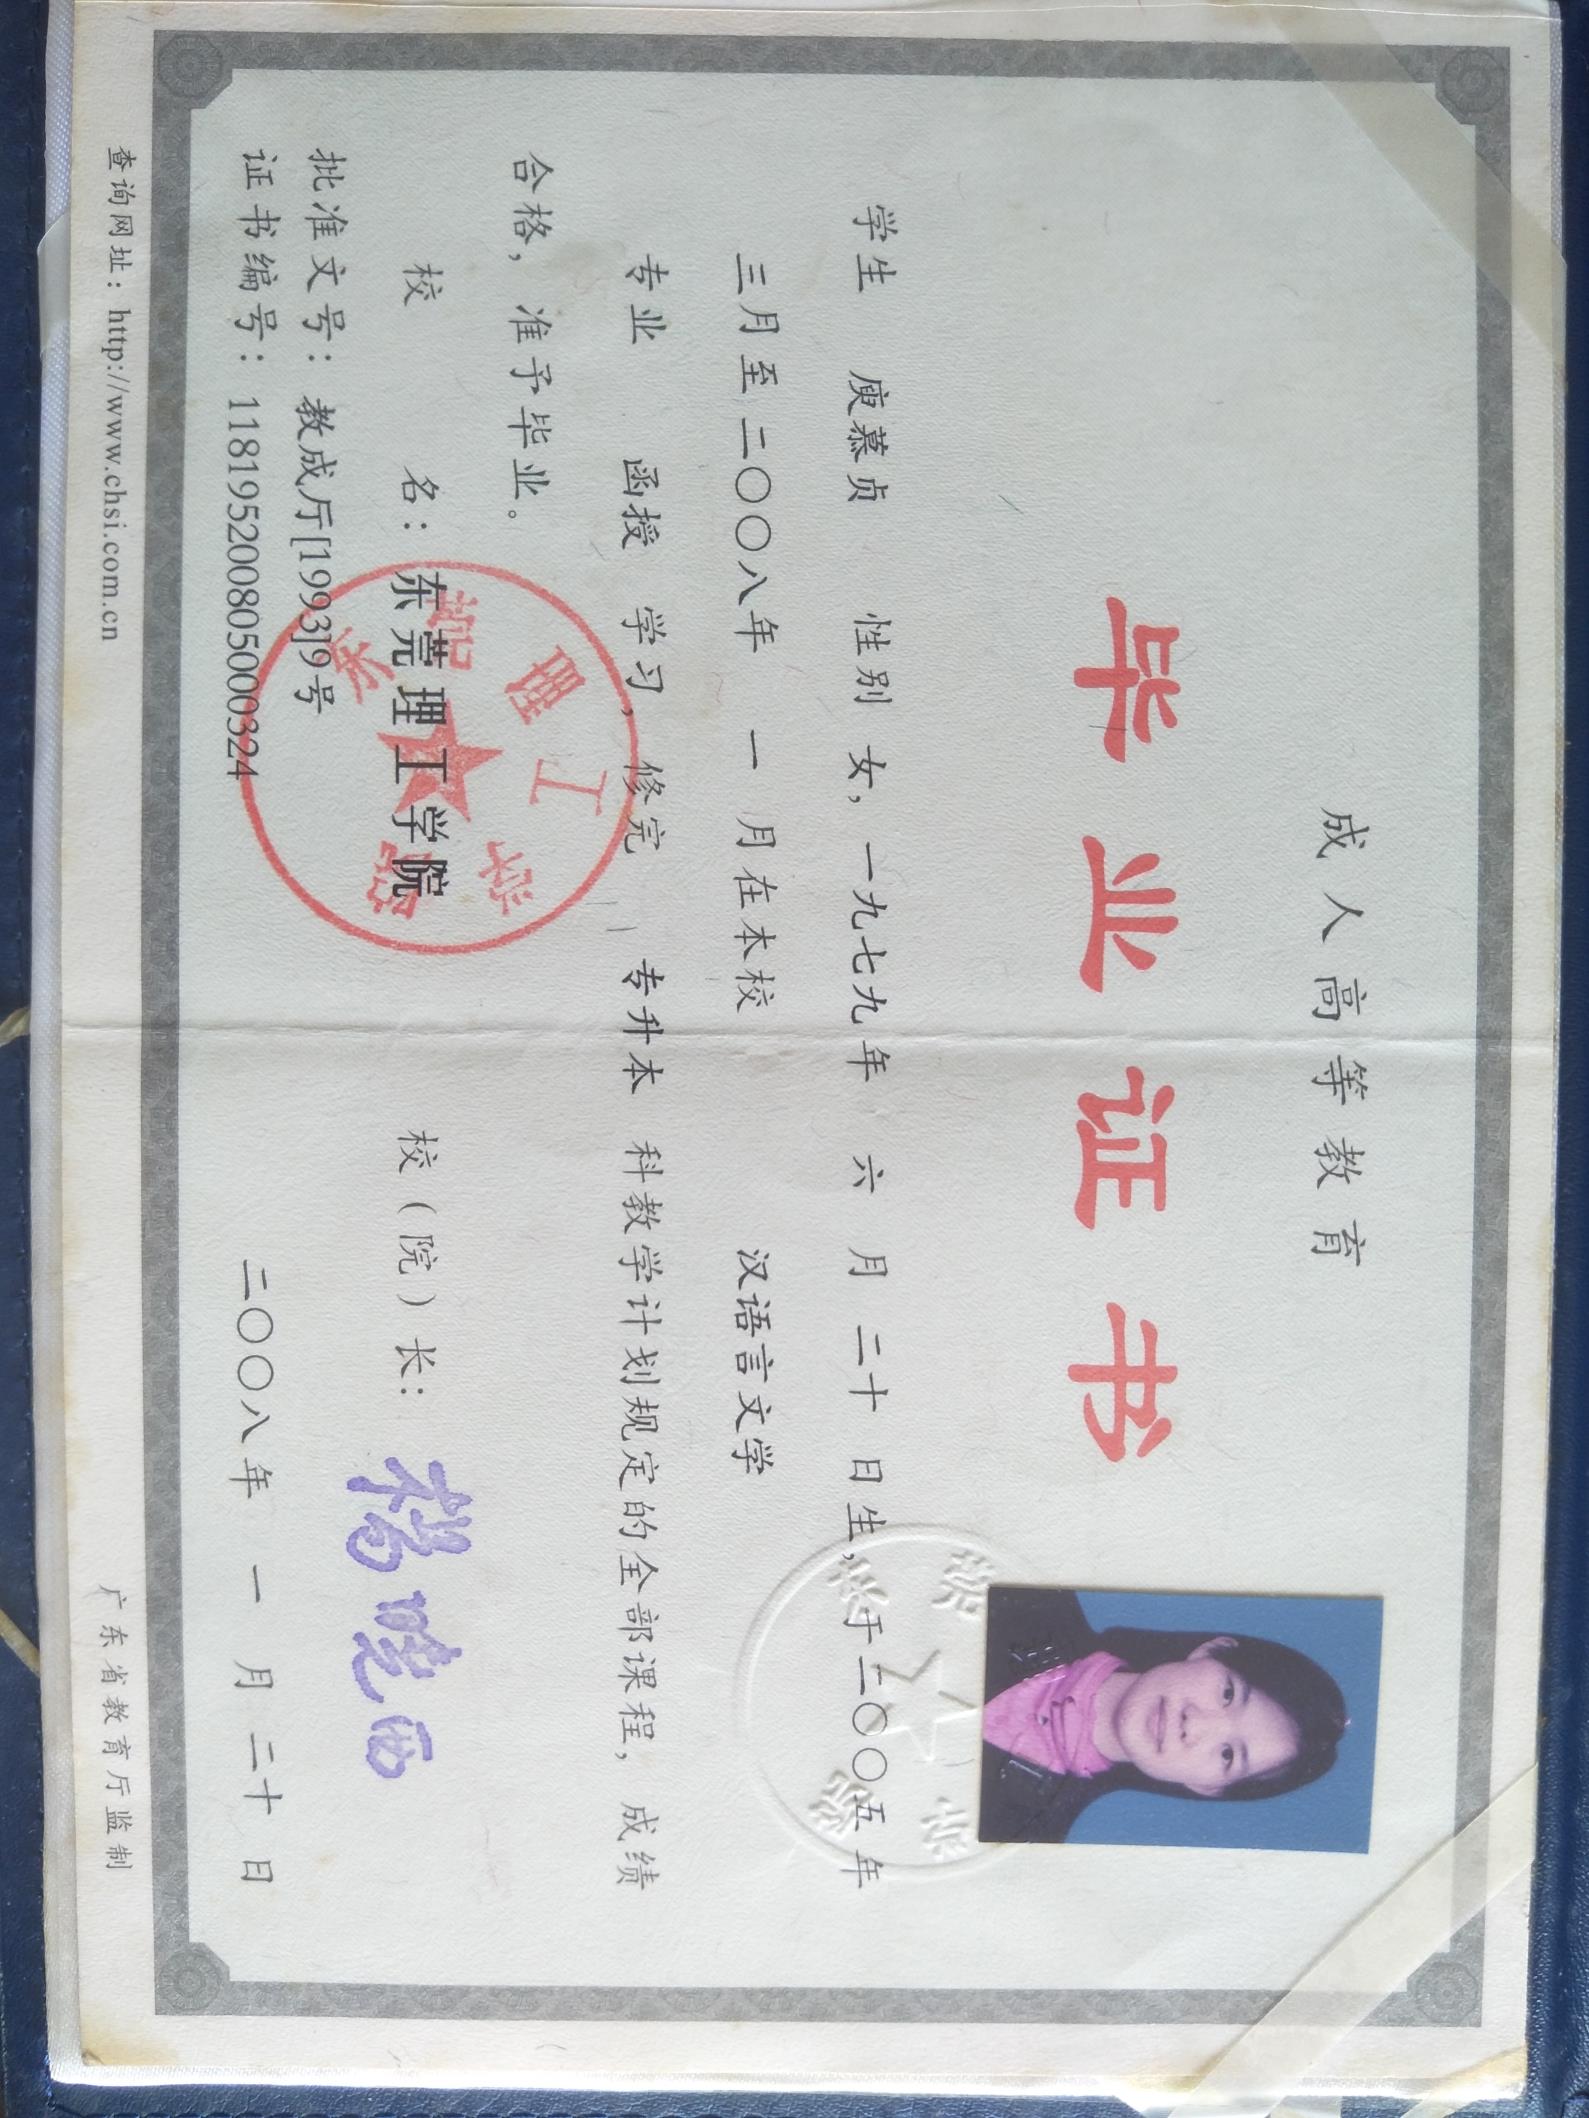 成人高等教育
毕业证书
学生 庾慕贞 性别 女，一九七九年 六 月 二十 日生，于二〇〇五年
三月至二〇〇八年 一 月在本校 汉语言文学
专业 函授 学习，修完 专升本 科教学计划规定的全部课程，成绩
合格，准予毕业。
校 名：东莞理工学院 校（院）长：
批准文号：教成厅[1993]9号
证书编号：118195200805000324 二〇〇八年 一 月 二十 日
查询网址：http://www.chsi.com.cn 广东省教育厅监制
东莞理工学院